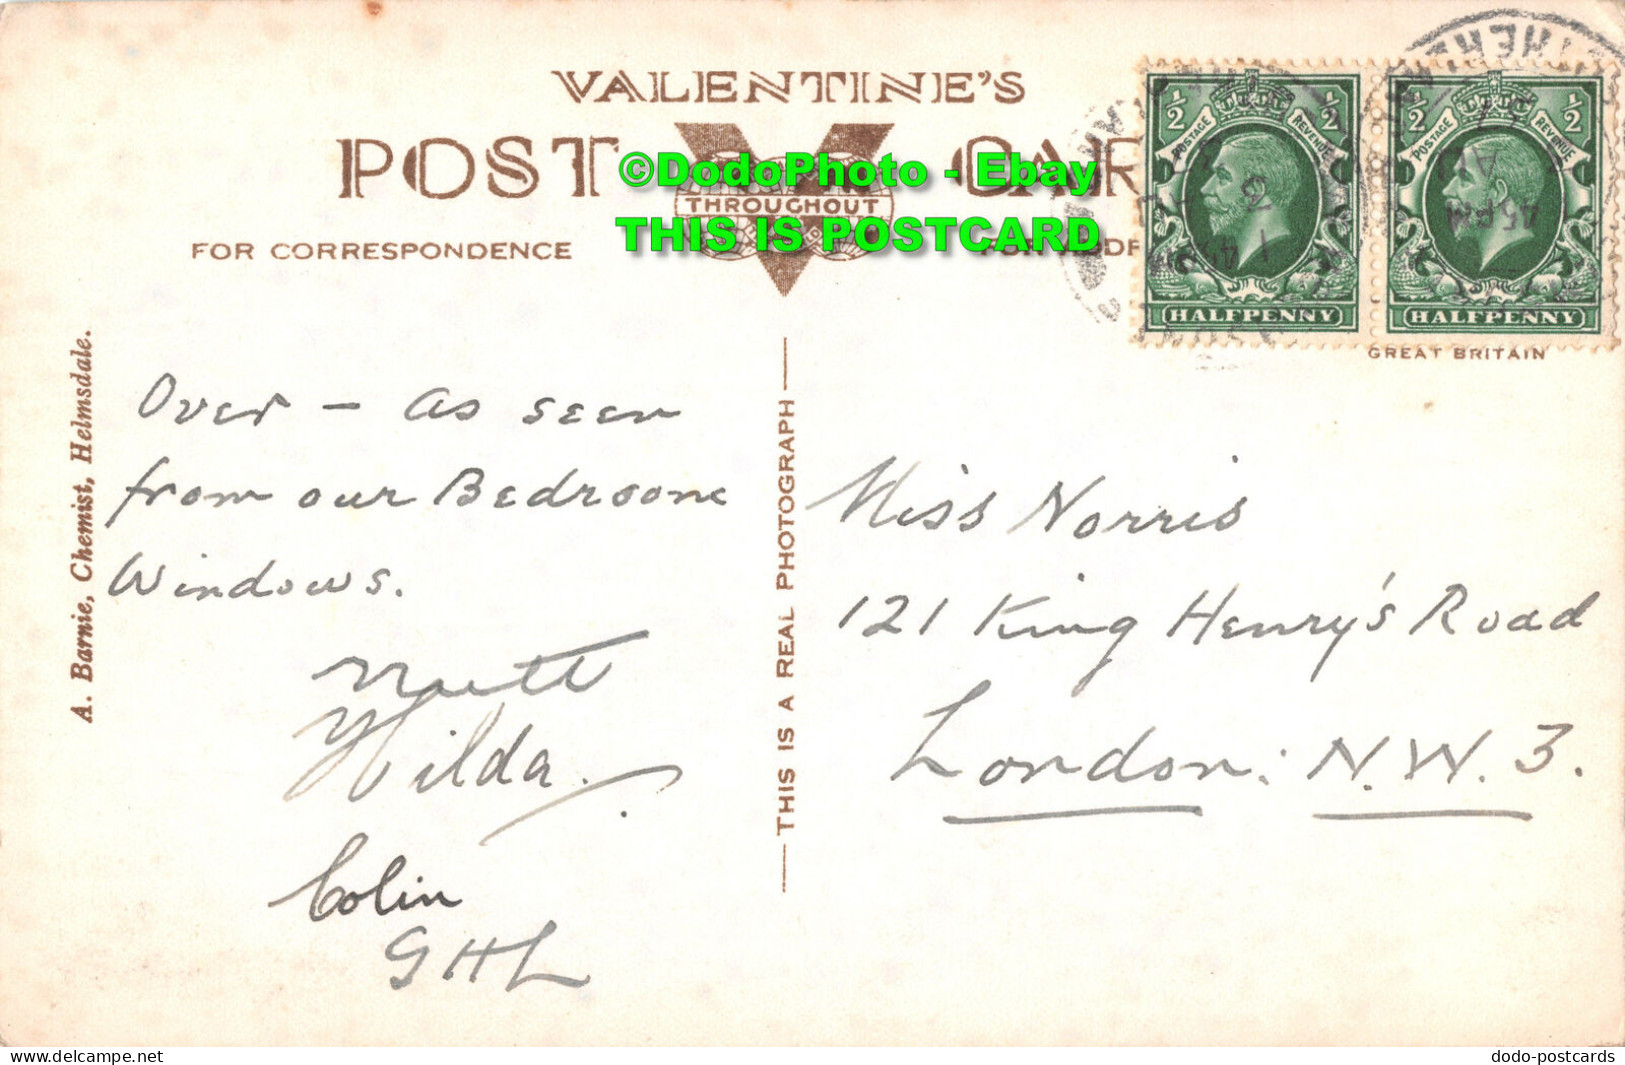 VALENTINE'S
POST CAR
THROUGHOUT
©DodoPhoto - Ebay
THIS IS POSTCARD
FOR CORRESPONDENCE
FOR ADDR
1/2 1/2
POSTAGE REVENUE
HALFPENNY
1/2 1/2
POSTAGE REVENUE
HALFPENNY
GREAT BRITAIN
A. Barnie, Chemist, Helmsdale.
THIS IS A REAL PHOTOGRAPH
Over – as seen
from our Bedroom
Windows.
Hilda.
Colin
GHL
Miss Norris
121 King Henry's Road
London: N.W.3.
www.delcampe.net
dodo-postcards